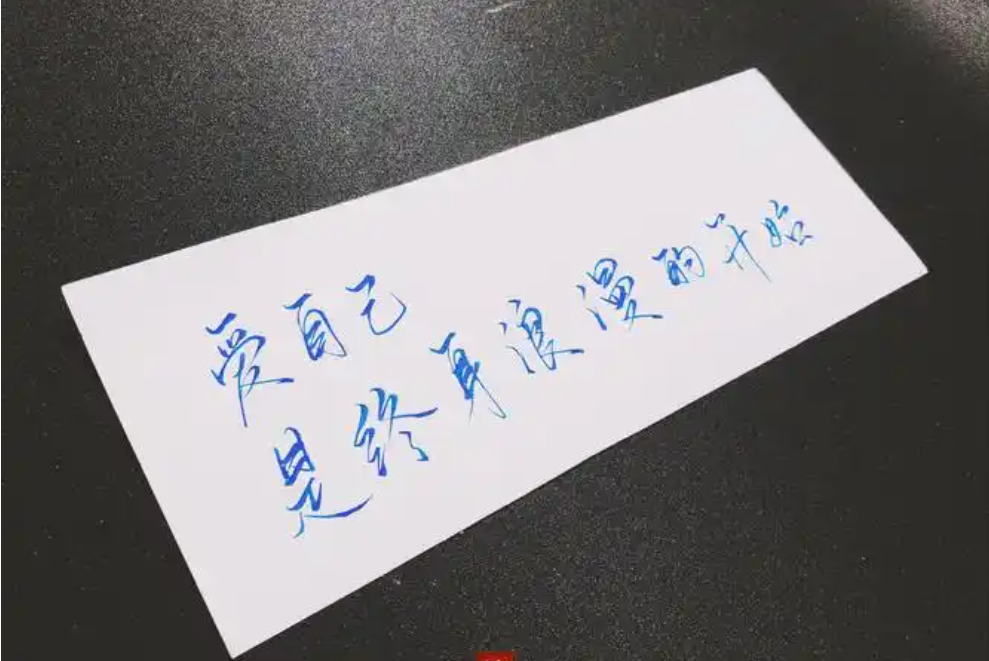 爱自己
是终身浪漫的开始